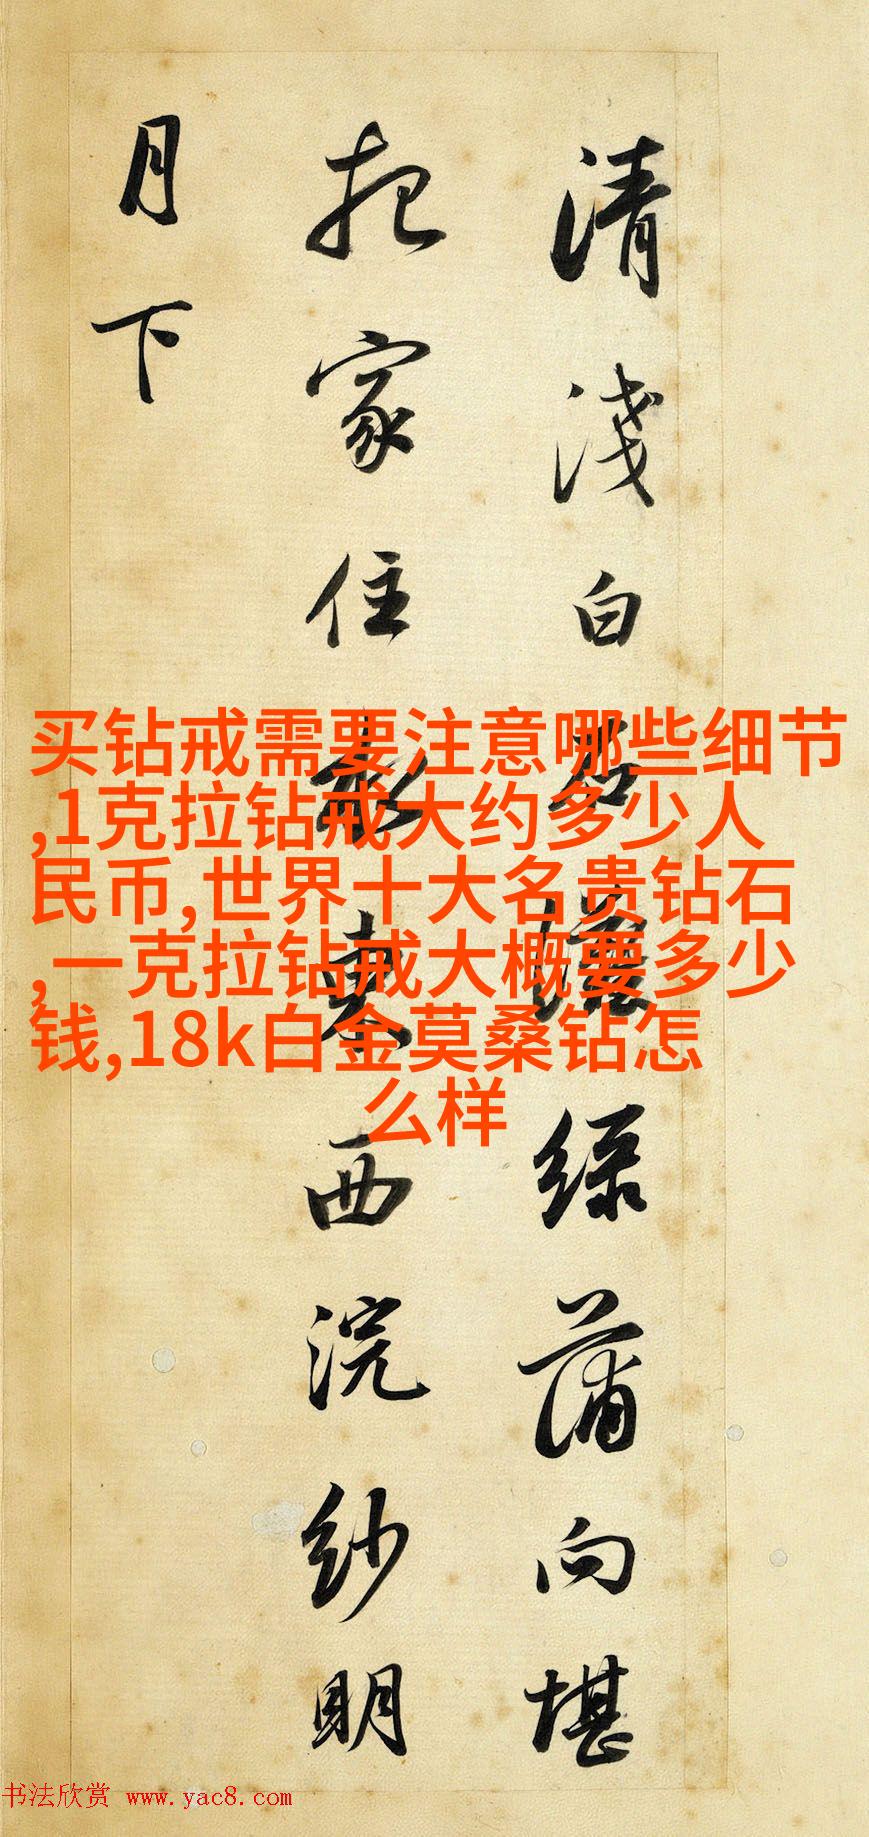 清淺白石灘綠蒲向堪
把家住水東西浣紗明
月下
买钻戒需要注意哪些细节
,1克拉钻戒大约多少人
民币,世界十大名贵钻石
,一克拉钻戒大概要多少
钱,18k白金莫桑钻怎
么样
书法欣赏 www.yac8.com